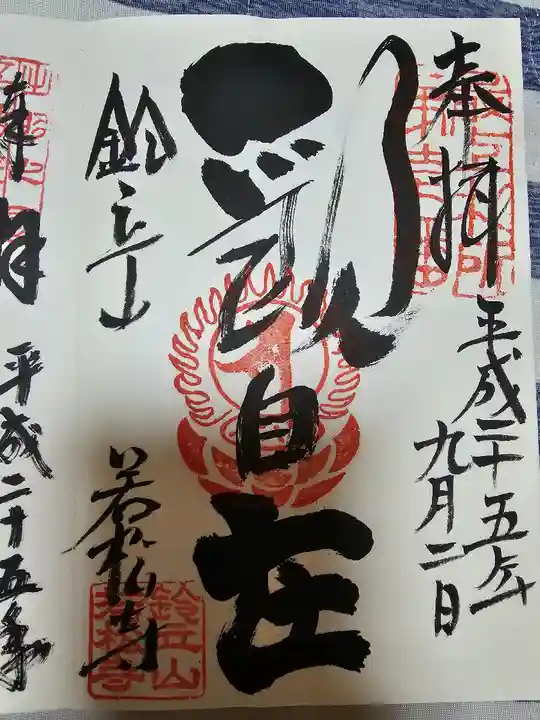 奉拝
平成二十五年
九月二日
観自在
鈴立山
若松寺
鈴立山
若松寺
奉拝
平成二十五年